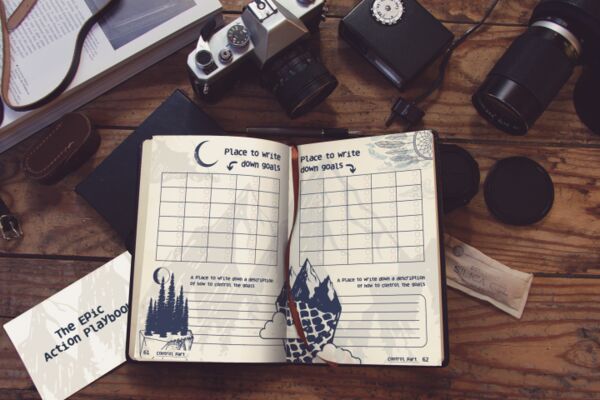 Place to write
down goals
Place to write
down goals
A Place to write down a description
of how to control the goals
A Place to write down a description
of how to control the goals
61 Control Part
Control Part 62
The Epic
Action Playbook